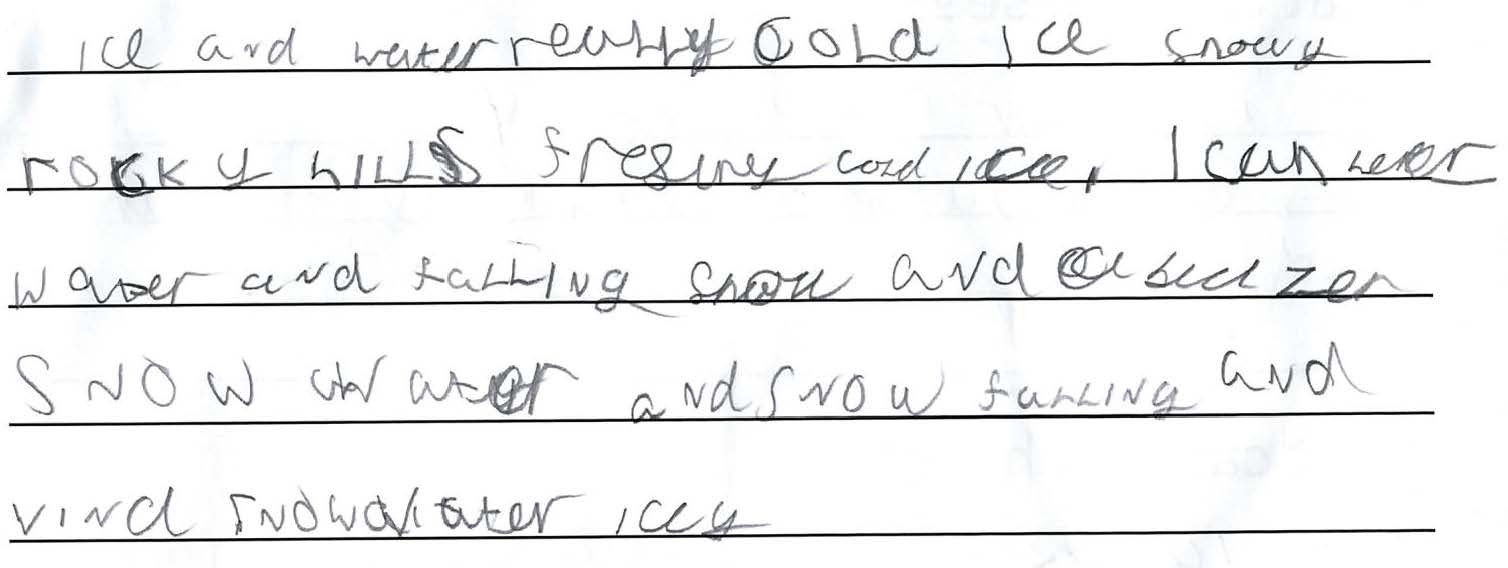 ice and water really cold ice snowy
rocky hills fresiny cold ice, I can herer
water and falling snow and a
snow water and snow falling and
vind snow water iccy